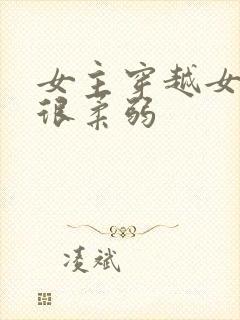 女主穿越女
很柔弱
凌斌